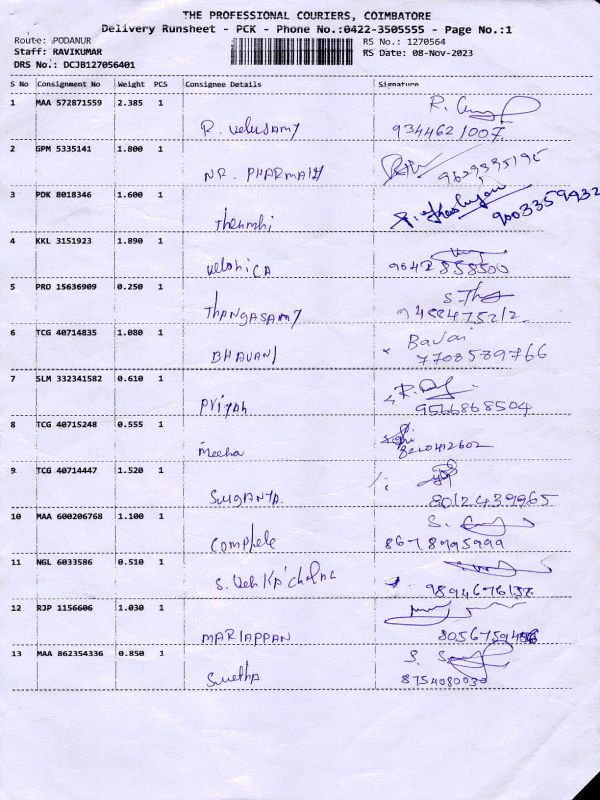 THE PROFESSIONAL COURIERS, COIMBATORE
Delivery Runsheet - PCK - Phone No.:0422-3505555 - Page No.:1
Route: PODANUR RS No.: 1270564
Staff: RAVIKUMAR RS Date: 08-Nov-2023
DRS No.: DCJB127056401
S No Consignment No Weight PCS Consignee Details Signature
1 MAA 572871559 2.385 1
R. Velusamy 9344621007
2 GPM 5335141 1.800 1
NR. PHARMACY 9629395195
3 PDK 8018346 1.600 1
Thenmshi 9003359932
4 KKL 3151923 1.890 1
Velonica 9042858500
5 PRO 15636909 0.250 1
S. Tha
THANGASAMY 9488475212
6 TCG 40714835 1.080 1 Bavai
BHAVANI 7708589766
7 SLM 332341582 0.610 1 R.
Priyah 9566868504
8 TCG 40715248 0.555 1
Meeha 8220412602
9 TCG 40714447 1.520 1
SUGANYA. 8012439965
10 MAA 600206768 1.100 1 S.
Complete 8678995999
11 NGL 6033586 0.510 1
S. 9894676132
12 RJP 1156606 1.030 1
MARIAPPAN
13 MAA 862354336 0.850 1 S.
Swetha 8754080030